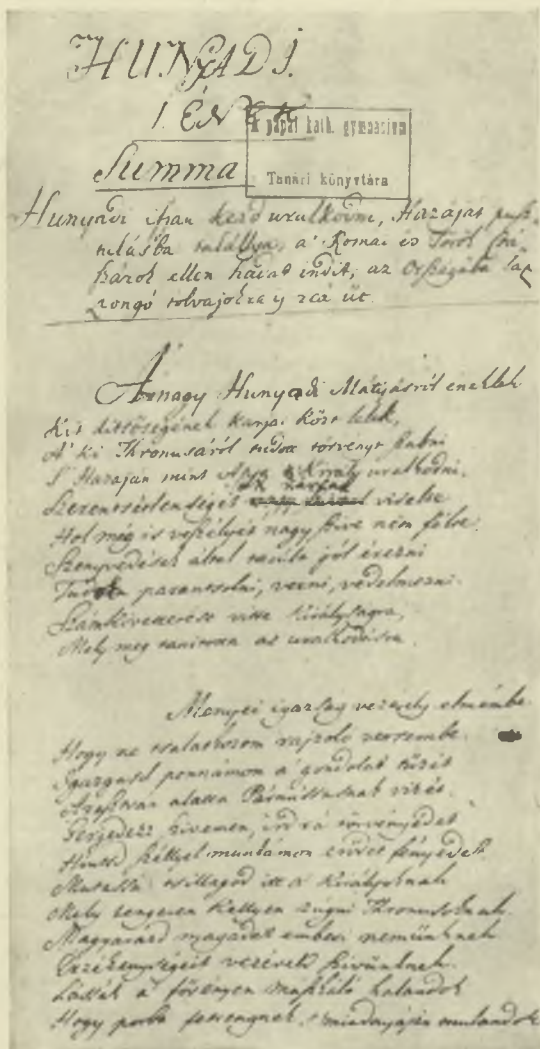 HUNYADI.
I. ÉNEK
A pápai kath. gymnasium
Summa
Tanári könyvtára
Hunyadi ifian kezd uralkodni, Hazáját pusz-
tulásba talállya, a' Romai és Török
ellen hadat indit, az Országába
tolvajokra reá üt.
A nagy Hunyadi Mátyásról éneklek
Kit ditsőségének karjai közt lelek,
A' ki Thronusáról tudta törvényt szabni
S Hazáján mint Apa 's Király uralkodni.
Szerentsétlenségét viselte
Hol még is veszélyét nagy szive nem félte.
Szenvedések által tanúla jól érezni
Tudott parantsolni, verni, védelmezni.
Számkivetetése vitte Királyságra,
Mely meg tanitotta az uralkodásra.
Mennyei igazság vezérely elmémbe
Hogy ne tsalatkozzam rajzoló versembe.
Igazgasd pennámon a' gondolat tüzét
alatta Párnássusnak vizét.
Gerjedezz szivemen, ird rá törvényedet
Hintsd széllyel munkámon erődet fényedet
Mutassd tsillagod itt a' Királyoknak
Mely tengeren kellyen zúgni Thronusoknak.
Magyarázd magadat emberi nemünknek
vezéreld szivünknek.
Lássák a' fövényen halandók
Hogy porba mulandók